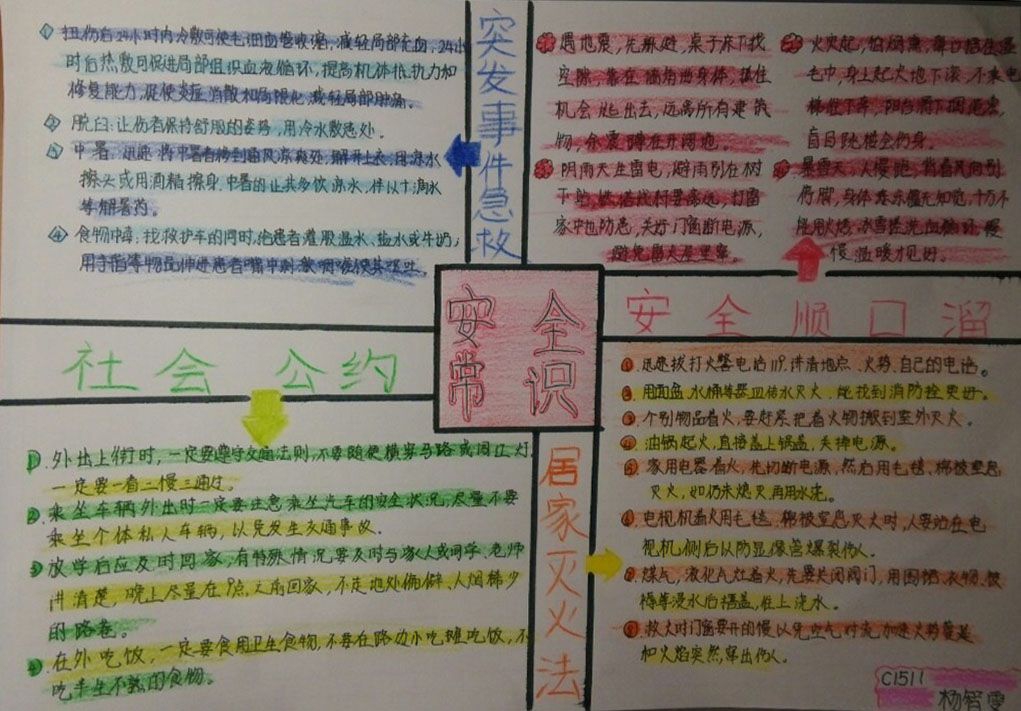 突发事件急救
① 扭伤后24小时内冷敷可使毛细血管收缩,减轻局部充血,24小
时后热敷可促进局部组织血液循环,提高机体抵抗力和
修复能力,促使炎症消散和局限化,减轻局部肿痛。
② 脱臼:让伤者保持舒服的姿势,用冷水敷患处。
③ 中暑:迅速将中暑者移到通风凉爽处,解开上衣,用凉水
擦头或用酒精擦身,中暑的让其多饮凉水,伴以十滴水
等解暑药。
④ 食物中毒:找救护车的同时,给患者灌服温水、盐水或牛奶,
用手指等物品伸进患者嘴中刺激咽喉使其呕吐。
遇地震,先躲避,桌子床下找
空隙,靠在墙角曲身体,抓住
机会逃出去,远离所有建筑
物,余震蹲在开阔地。
火灾起,怕烟熏,鼻口捂住湿
毛巾,身上起火地下滚,不乘电
梯往下奔,阳台滑下捆绳索,
盲目跳楼会伤身。
阴雨天生雷电,避雨别在树
下站,铁塔线杆要离远,打雷
家中也防患,关好门窗断电源,
避免雷火屋里窜。
暴雪天,人慢跑,背着风向别
停脚,身体冻木僵无知觉,千万不
能用火烤,冰雪搓洗血循环,慢
慢温暖才见好。
安全顺口溜
安全
常识
社会公约
1. 外出上街时,一定要遵守交通法则,不要随便横穿马路或闯红灯,
一定要一看二慢三通过。
2. 乘坐车辆外出时一定要注意乘坐汽车的安全状况,尽量不要
乘坐个体私人车辆,以免发生交通事故。
3. 放学后应及时回家,有特殊情况要及时与家人或同学、老师
讲清楚,晚上尽量在9点之前回家,不走地处偏僻、人烟稀少
的路巷。
4. 在外吃饭,一定要食用卫生食物,不要在路边小吃摊吃饭,不
吃半生不熟的食物。
居家灭火法
① 迅速拔打火警电话119,讲清地点、火势、自己的电话。
② 用面盆、水桶等器皿传水灭火,能找到消防栓更好。
③ 个别物品着火,要赶紧把着火物搬到室外灭火。
④ 油锅起火,直接盖上锅盖,关掉电源。
⑤ 家用电器着火,先切断电源,然后用毛毯、棉被窒息
灭火,如仍未熄灭再用水浇。
⑥ 电视机着火用毛毯、棉被窒息灭火时,人要站在电
视机侧后以防显像管爆裂伤人。
⑦ 煤气,液化气灶着火,先要关闭阀门,用围裙、衣物、被
褥等浸水后捂盖,往上浇水。
⑧ 救火时门窗要开的慢以免空气对流加速火势蔓延
加火焰突然窜出伤人。
C1511
杨智雯